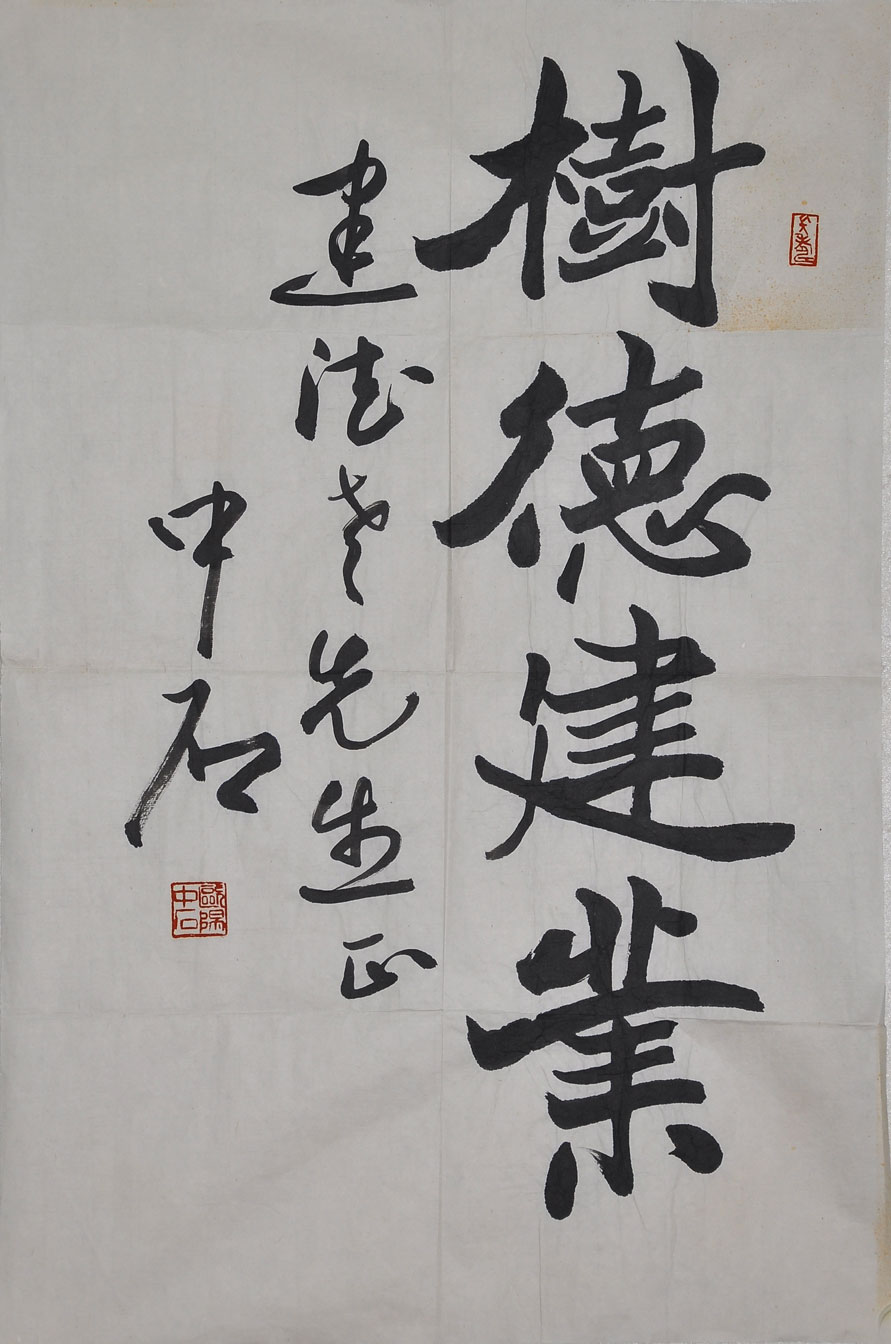 樹德建業
建德老先生正
中石
歐陽中石